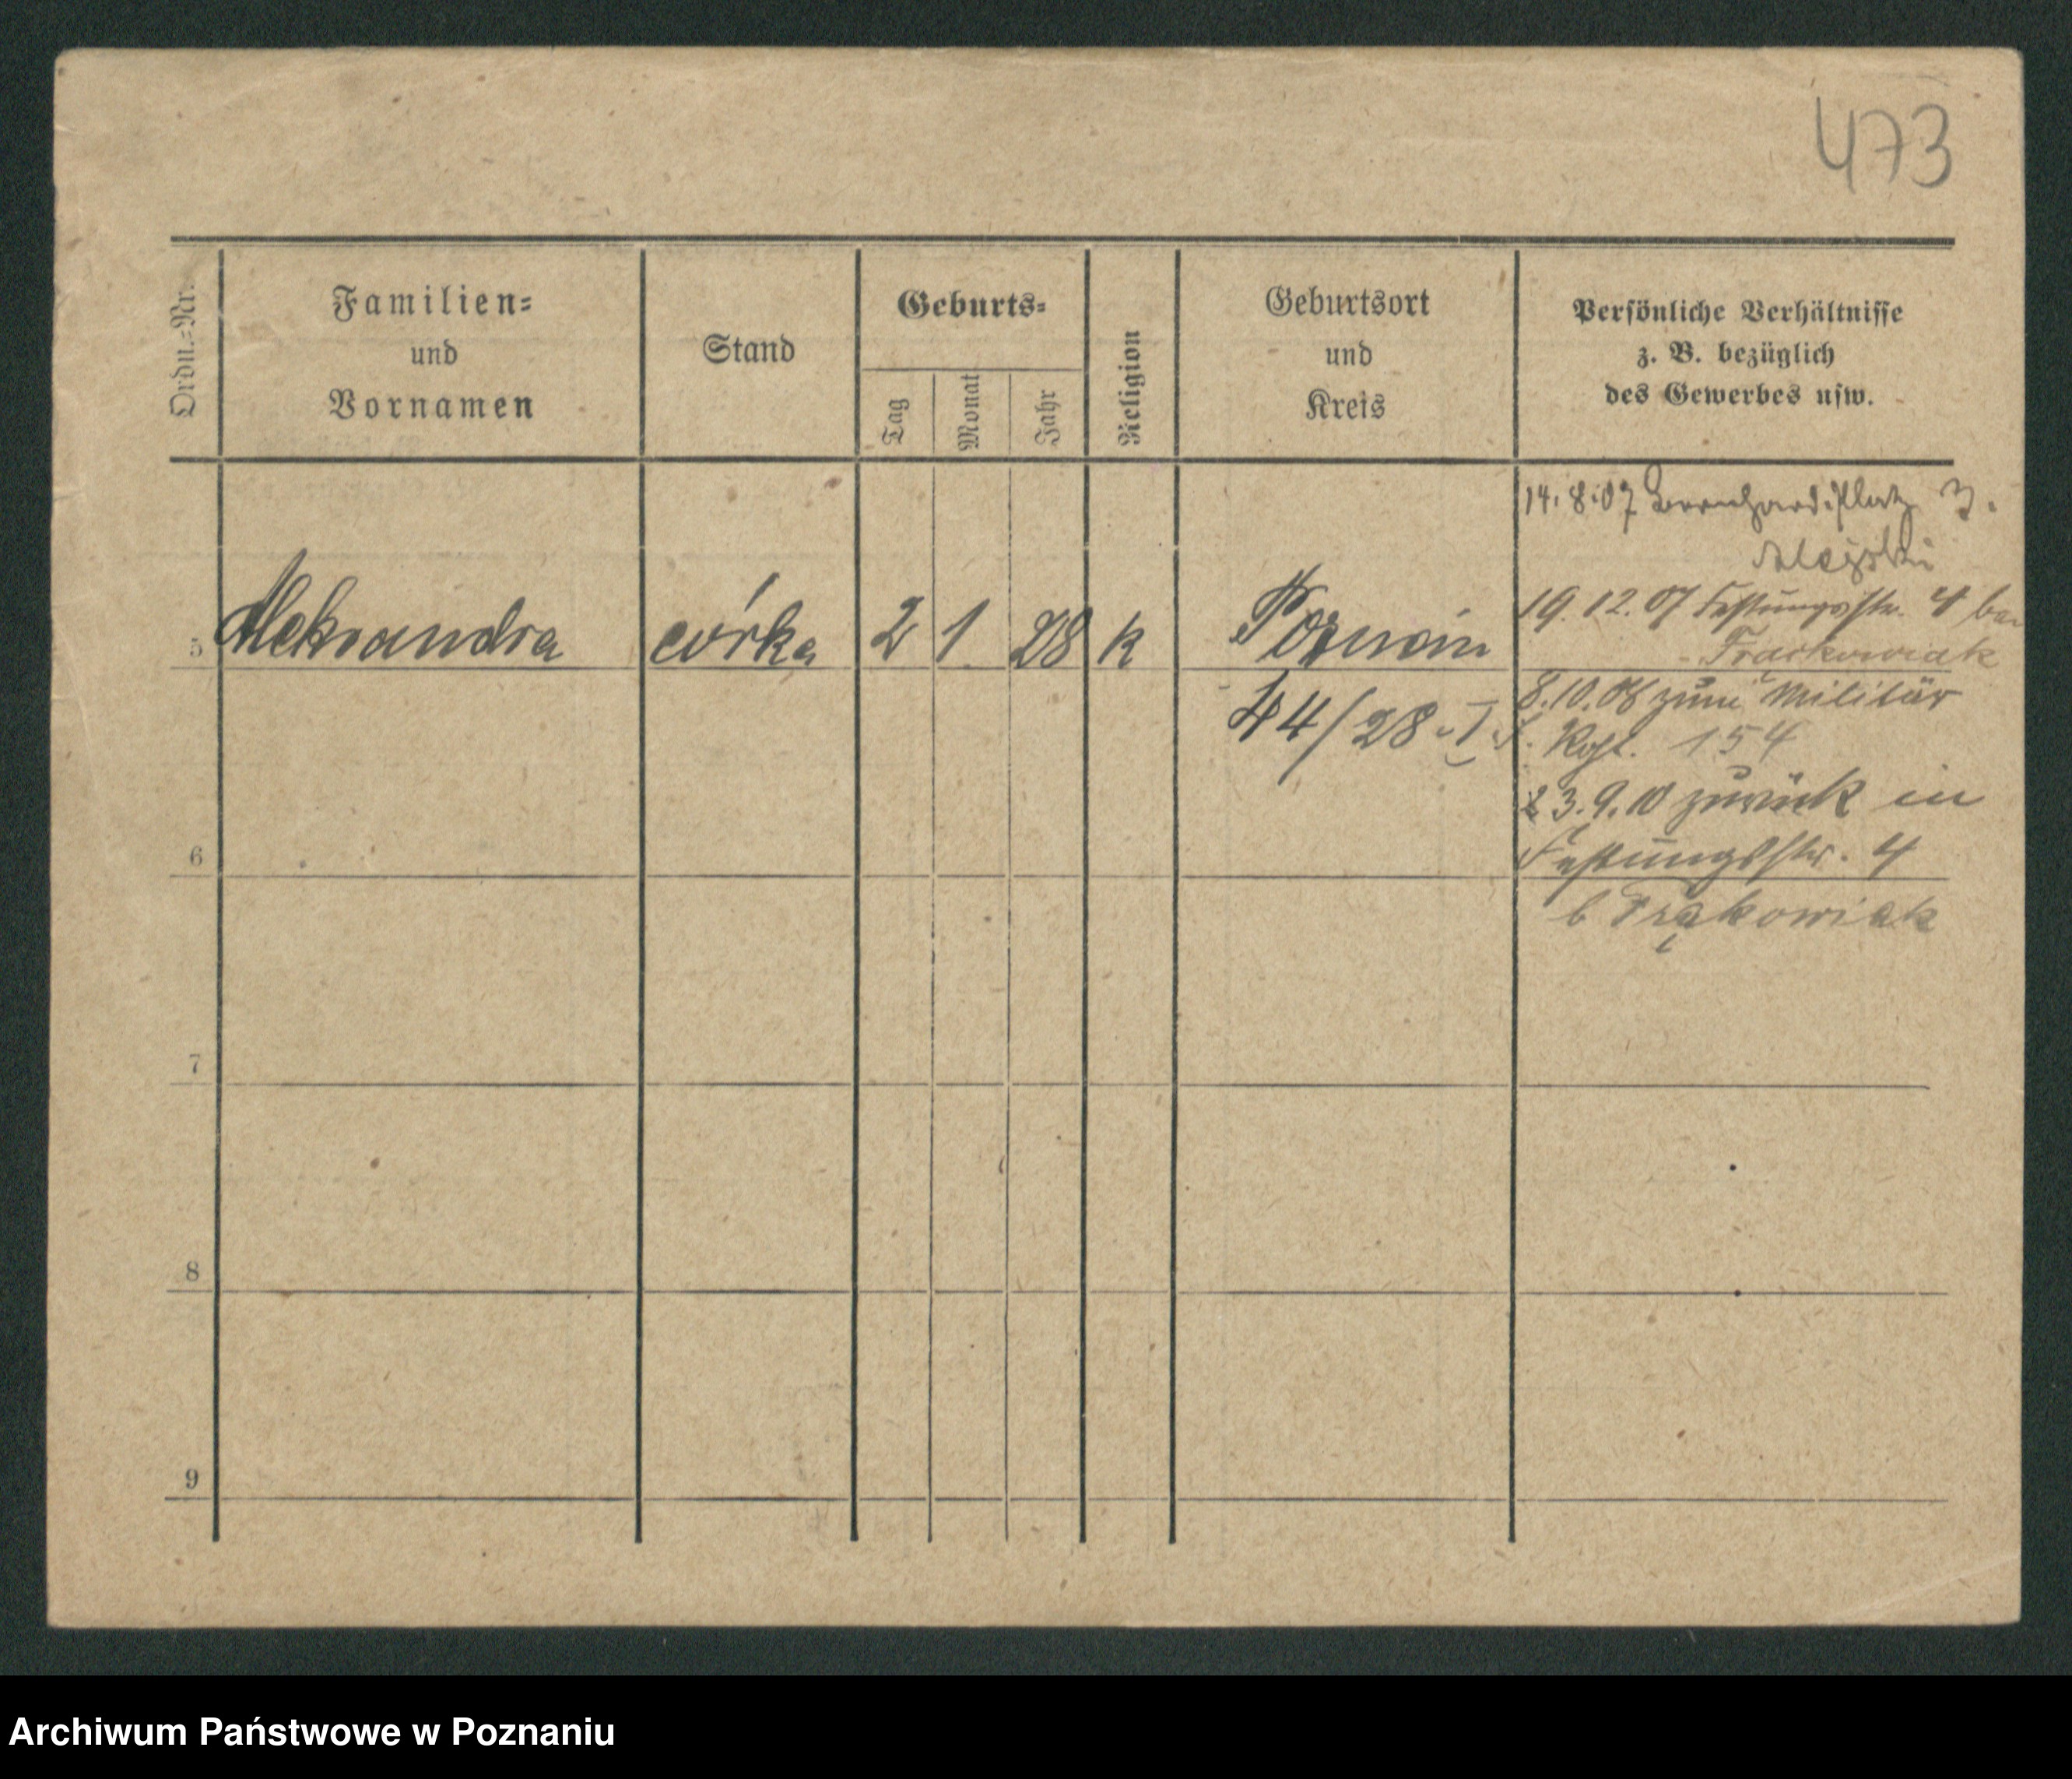 473
Ordn.=Nr.
Familien=
und
Vornamen
Stand
Geburts=
Tag
Monat
Jahr
Religion
Geburtsort
und
Kreis
Persönliche Verhältnisse
z. B. bezüglich
des Gewerbes usw.
14.8.07 Bernhard.platz 3.
5 Aleksandra córka 2 1 28 k Poznań
44/28
19.12.07 Festungsstr. 4
8.10.08 zum Militär
Rgt. 154
23.9.10 zurück in
6
Festungsstr. 4
b
7
8
9
Archiwum Państwowe w Poznaniu